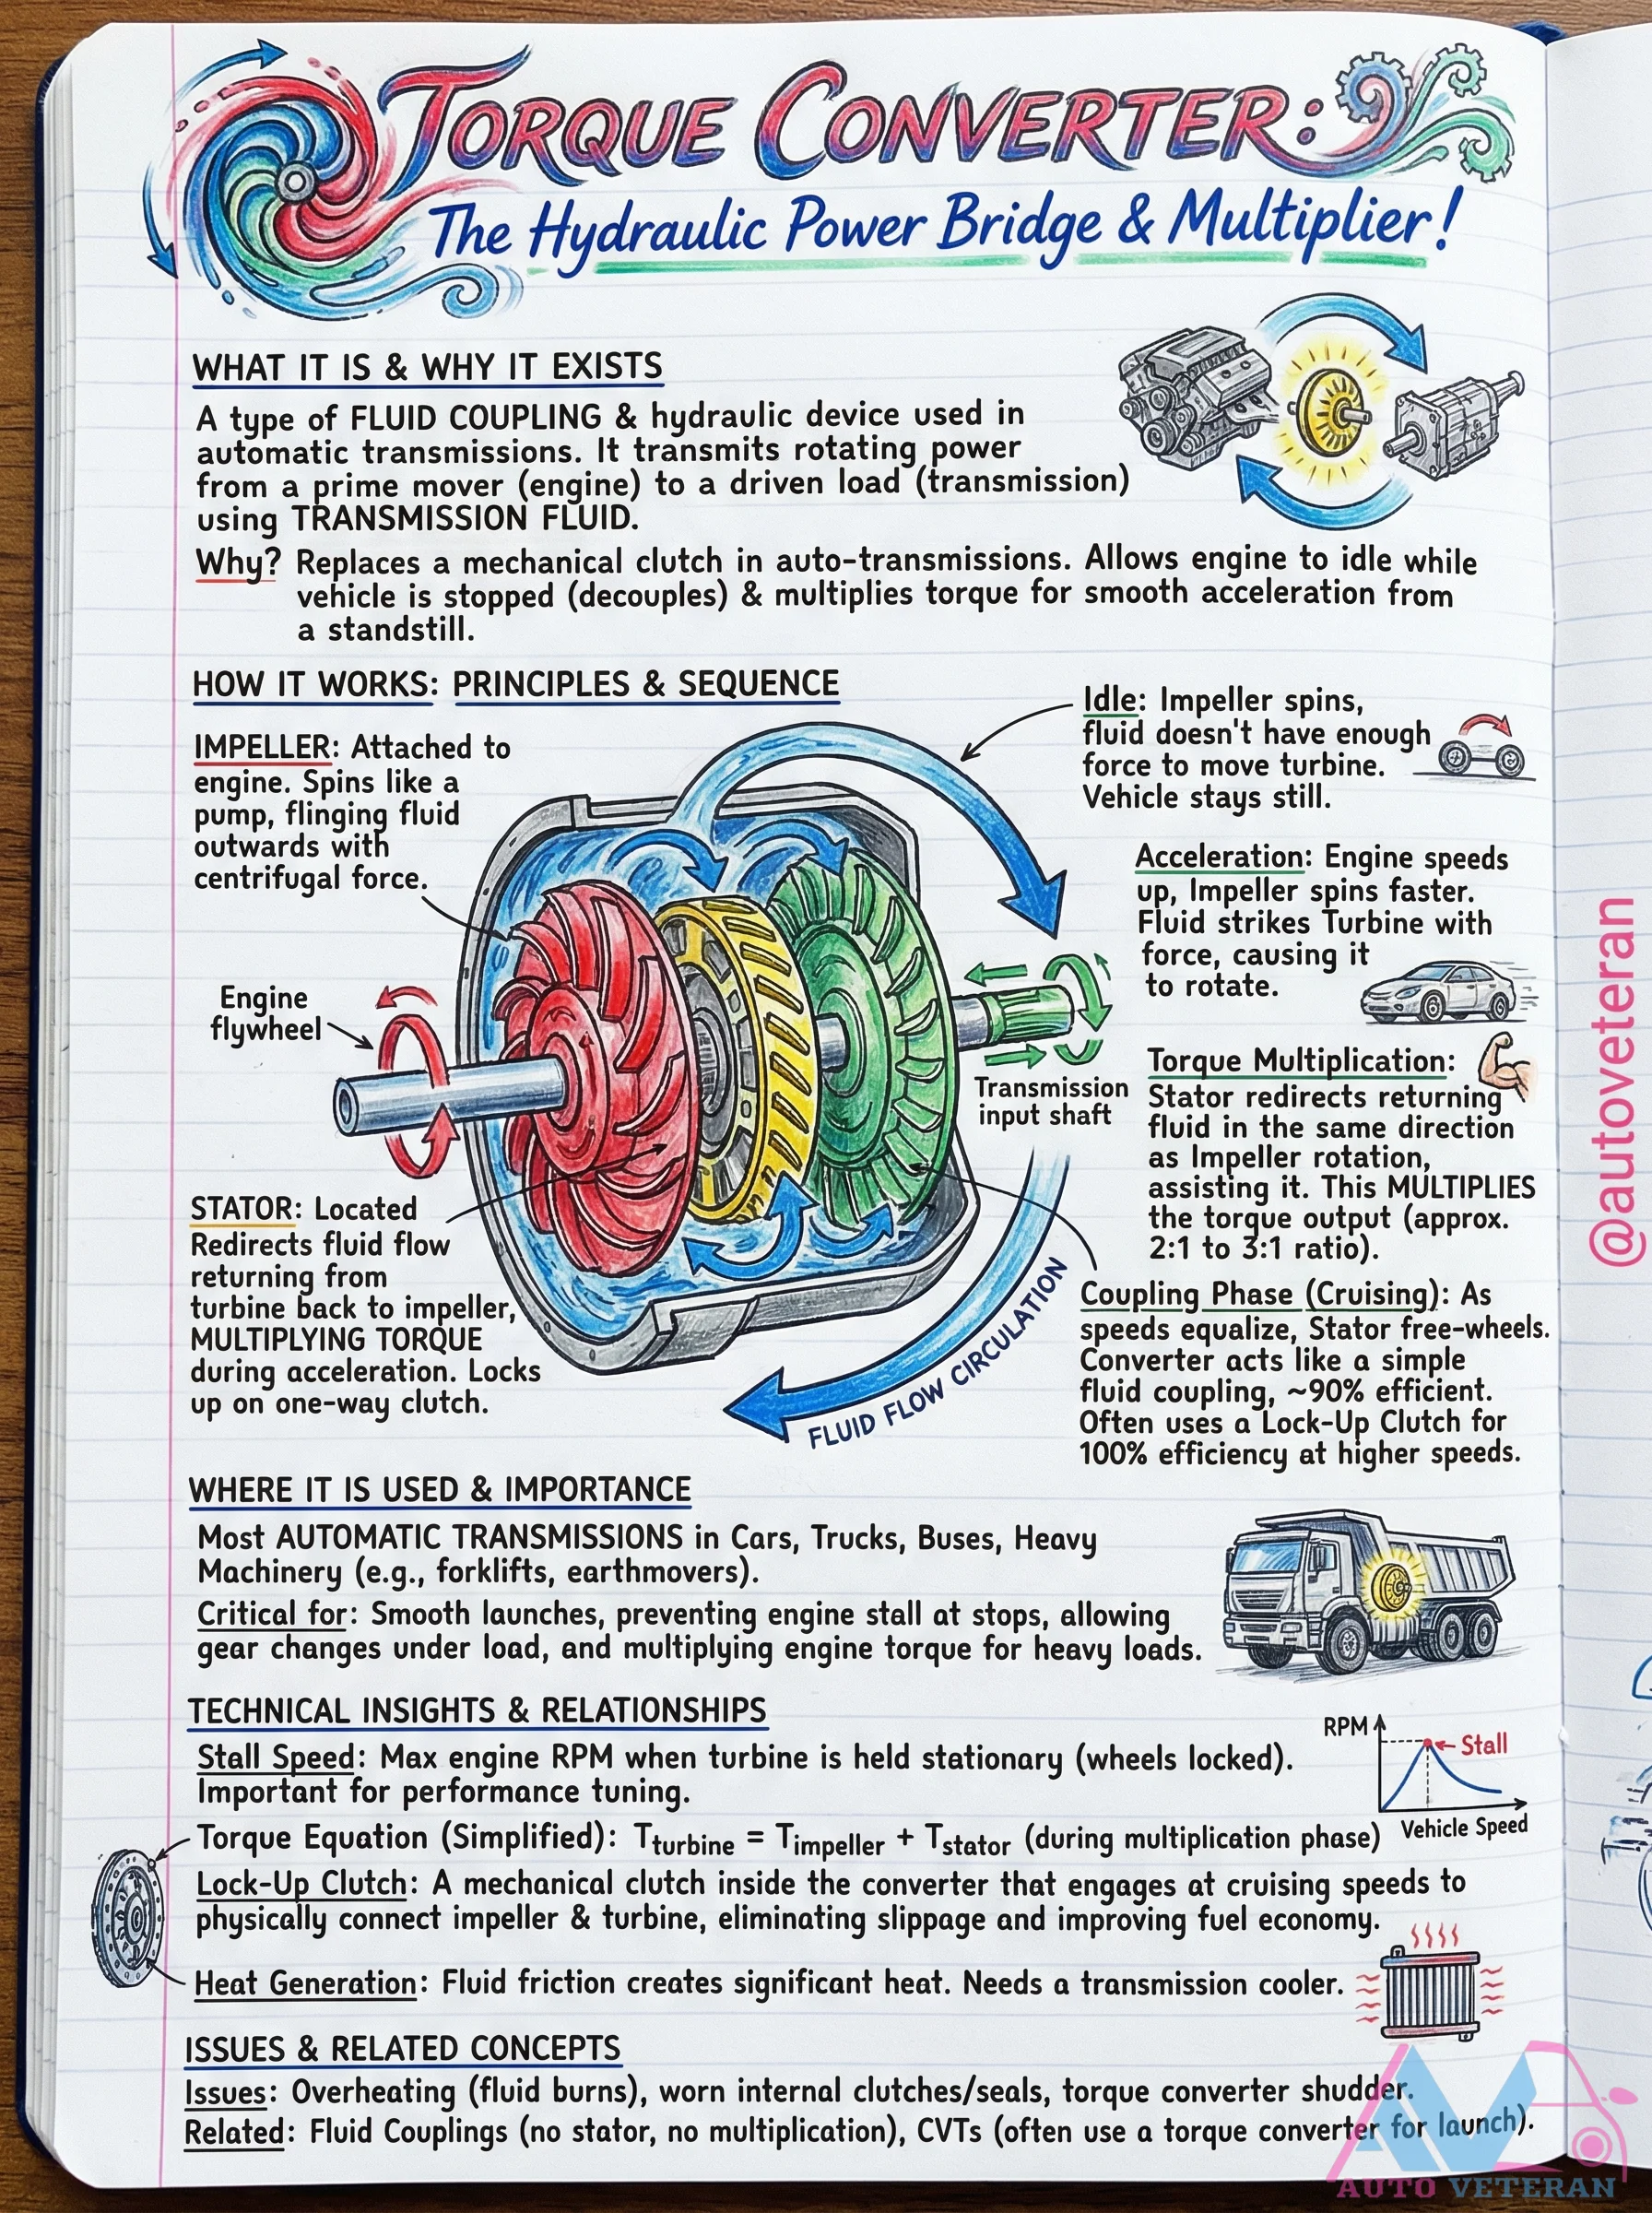 TORQUE CONVERTER:
The Hydraulic Power Bridge & Multiplier!
WHAT IT IS & WHY IT EXISTS
A type of FLUID COUPLING & hydraulic device used in
automatic transmissions. It transmits rotating power
from a prime mover (engine) to a driven load (transmission)
using TRANSMISSION FLUID.
Why? Replaces a mechanical clutch in auto-transmissions. Allows engine to idle while
vehicle is stopped (decouples) & multiplies torque for smooth acceleration from
a standstill.
HOW IT WORKS: PRINCIPLES & SEQUENCE
IMPELLER: Attached to
engine. Spins like a
pump, flinging fluid
outwards with
centrifugal force.
Engine
flywheel
STATOR: Located
Redirects fluid flow
returning from
turbine back to impeller,
MULTIPLYING TORQUE
during acceleration. Locks
up on one-way clutch.
Transmission
input shaft
FLUID FLOW CIRCULATION
Idle: Impeller spins,
fluid doesn't have enough
force to move turbine.
Vehicle stays still.
Acceleration: Engine speeds
up, Impeller spins faster.
Fluid strikes Turbine with
force, causing it
to rotate.
Torque Multiplication:
Stator redirects returning
fluid in the same direction
as Impeller rotation,
assisting it. This MULTIPLIES
the torque output (approx.
2:1 to 3:1 ratio).
Coupling Phase (Cruising): As
speeds equalize, Stator free-wheels.
Converter acts like a simple
fluid coupling, ~90% efficient.
Often uses a Lock-Up Clutch for
100% efficiency at higher speeds.
WHERE IT IS USED & IMPORTANCE
Most AUTOMATIC TRANSMISSIONS in Cars, Trucks, Buses, Heavy
Machinery (e.g., forklifts, earthmovers).
Critical for: Smooth launches, preventing engine stall at stops, allowing
gear changes under load, and multiplying engine torque for heavy loads.
TECHNICAL INSIGHTS & RELATIONSHIPS
Stall Speed: Max engine RPM when turbine is held stationary (wheels locked).
Important for performance tuning.
RPM
Stall
Vehicle Speed
Torque Equation (Simplified): Tturbine = Timpeller + Tstator (during multiplication phase)
Lock-Up Clutch: A mechanical clutch inside the converter that engages at cruising speeds to
physically connect impeller & turbine, eliminating slippage and improving fuel economy.
Heat Generation: Fluid friction creates significant heat. Needs a transmission cooler.
ISSUES & RELATED CONCEPTS
Issues: Overheating (fluid burns), worn internal clutches/seals, torque converter shudder.
Related: Fluid Couplings (no stator, no multiplication), CVTs (often use a torque converter for launch).
@autoveteran
AUTO VETERAN